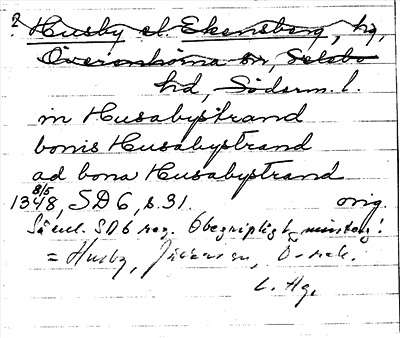 ? Husby el. Ekensberg, hg,
Överenhörna sn, Selebo
hd, Söderm. l.
in Husabystrand
bonis Husabystrand
ad bona Husabystrand
8/5
1348, SD 6, s. 31. orig.
Så enl. SD 6 reg. Obegripligt, minst sagt!
= Husby,